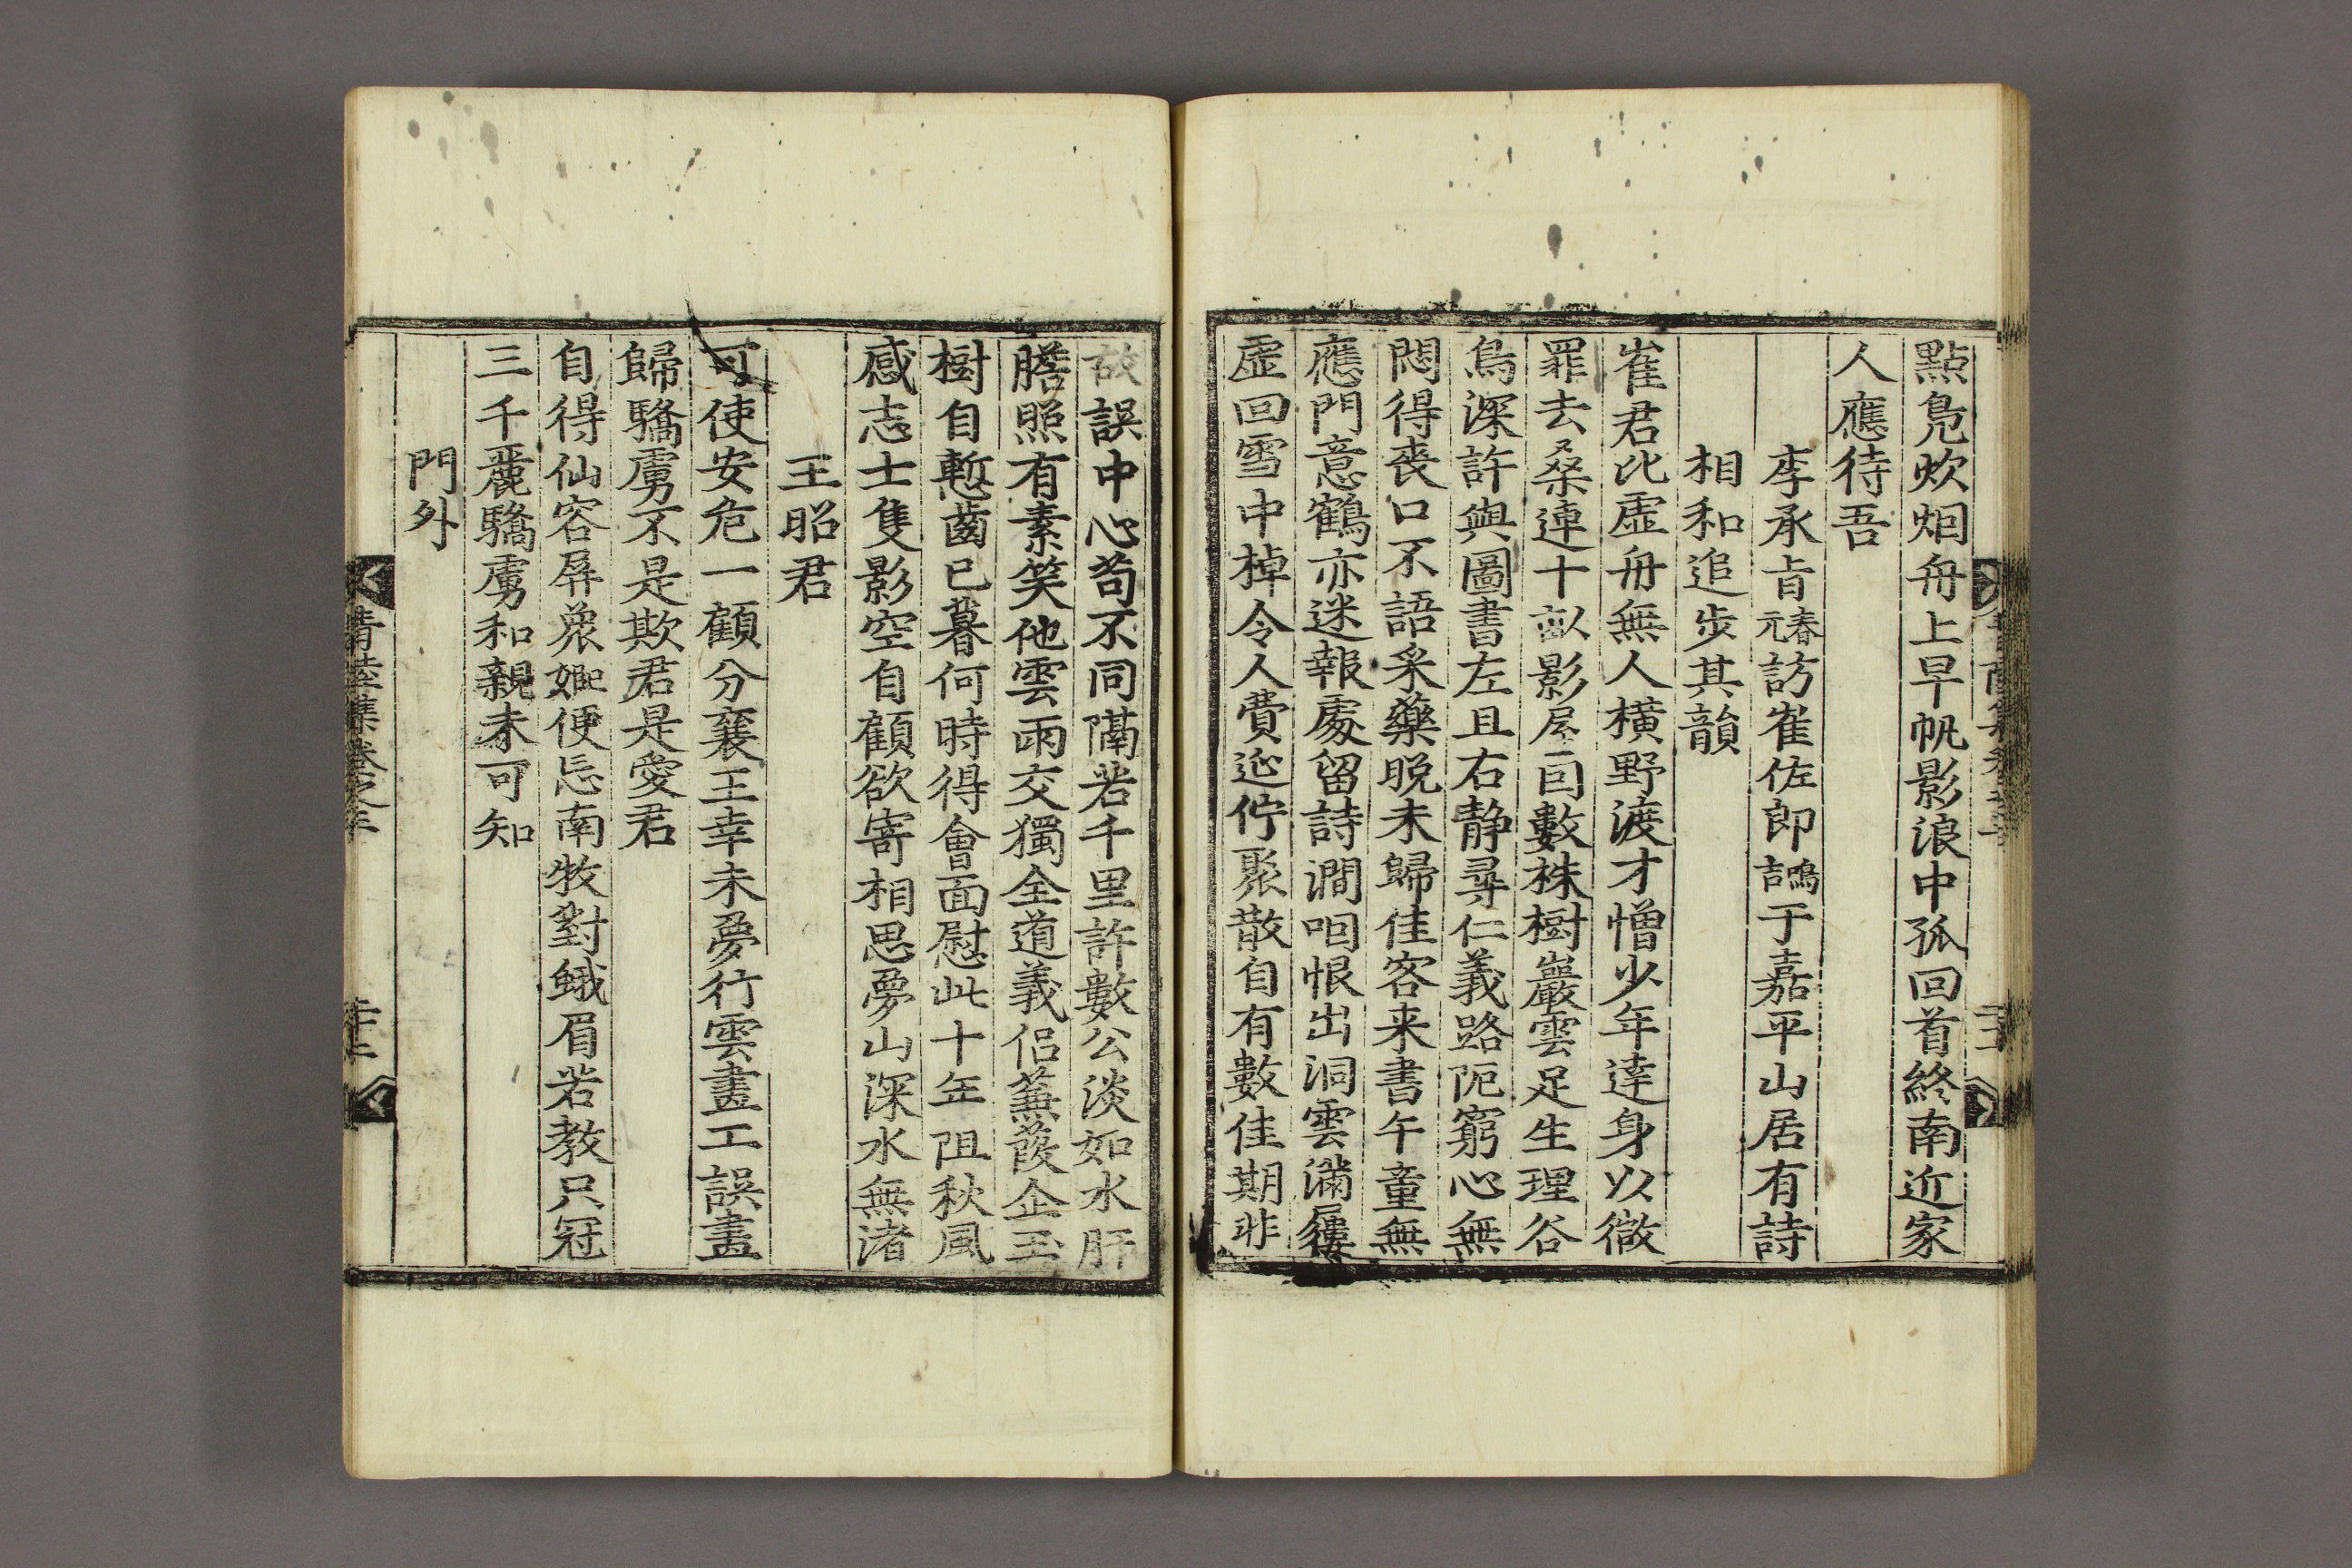 點鳧炊烟舟上早帆影浪中孤回首終南近家
人應待吾
李承旨元春訪崔佐郎鳴吉于嘉平山居有詩
相和追步其韻
崔君比虛舟無人橫野渡才憎少年達身以微
罪去桑連十畝影屋回數株樹巖雲足生理谷
鳥深許與圖書左且右静尋仁義路阨窮心無
悶得喪口不語采藥晚未歸佳客来書午童無
應門意鶴亦迷報處留詩澗咽恨出洞雲滿屨
虛回雪中棹令人費延佇聚散自有數佳期非
故誤中心苟不同隣若千里許數公淡如水肝
膽照有素笑他雲雨交獨全道義侶蒹葭企玉
樹自慙齒已暮何時得會面慰此十年阻秋風
感志士隻影空自顧欲寄相思夢山深水無渚
王昭君
可使安危一顧分襄王幸未夢行雲畫工誤畫
歸驕虜不是欺君是愛君
自得仙容屏衆姬便忘南牧對蛾眉若教只冠
三千麗驕虜和親未可知
門外
青陸集卷之三